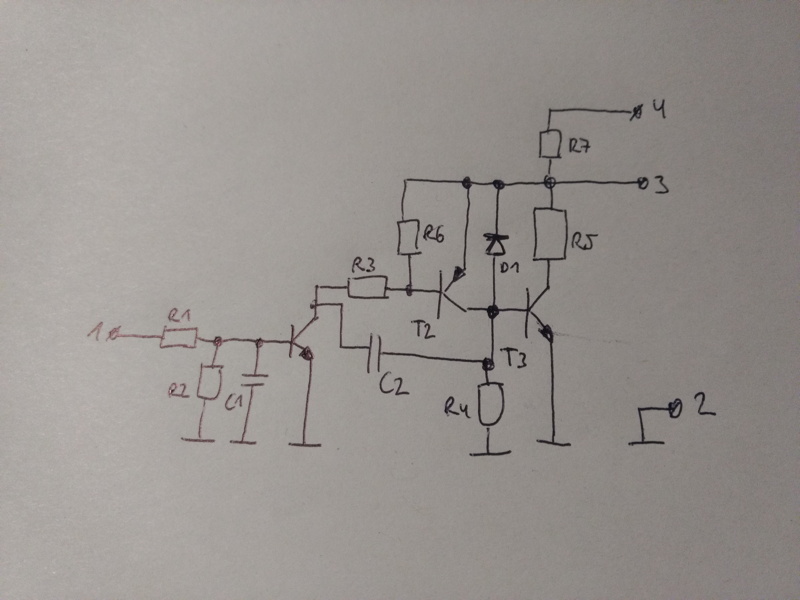 4
R7
3
R6
R5
R3
D1
R1
1
T2
T3
R2
C1
C2
R4
2